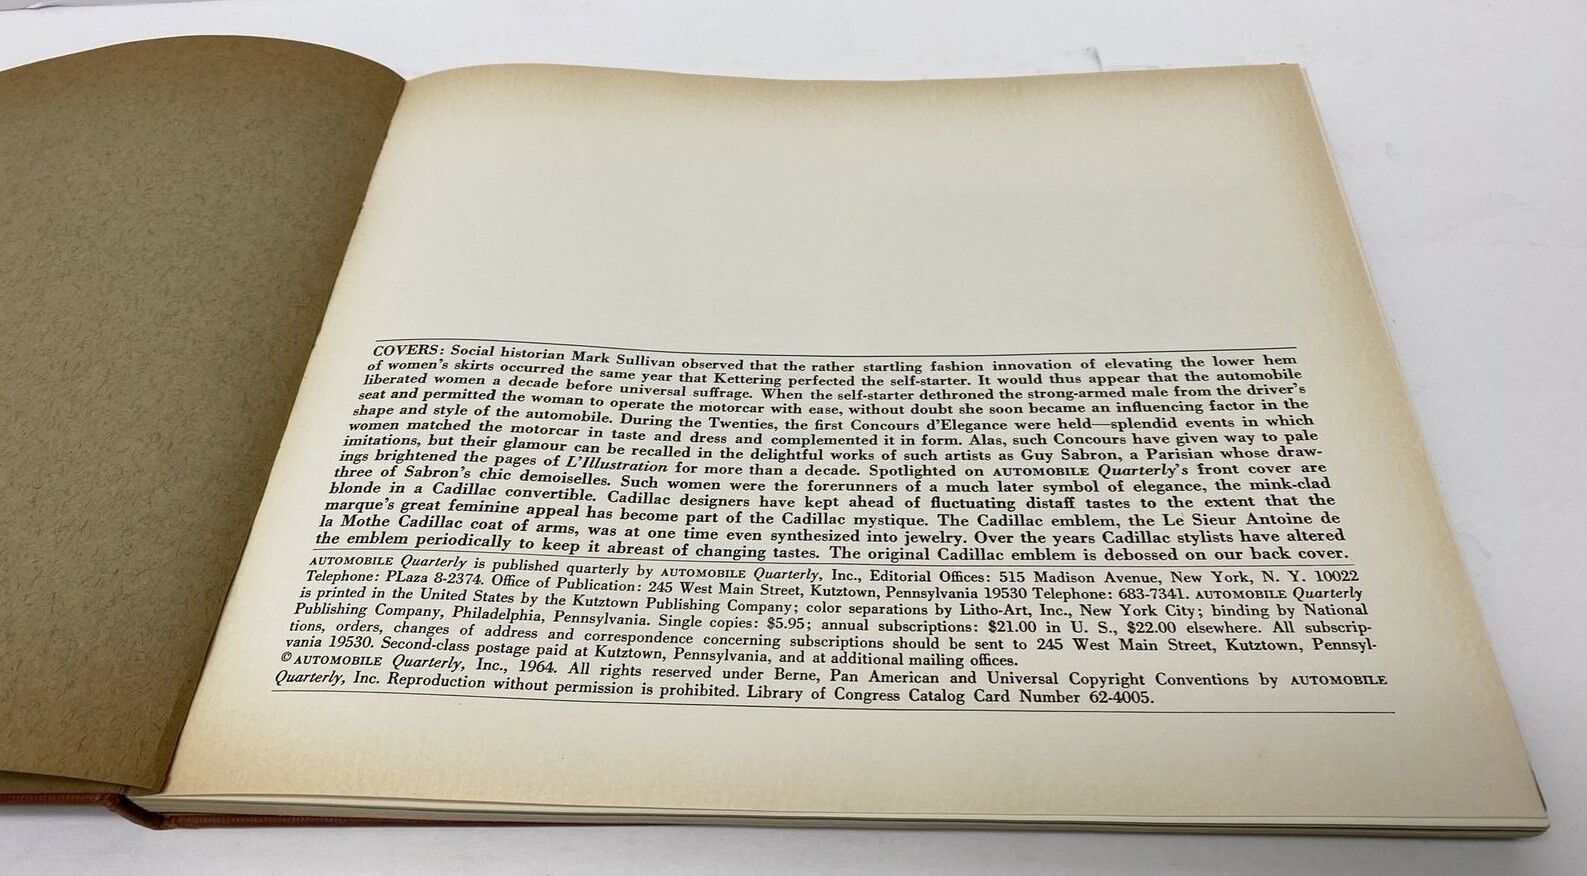 COVERS: Social historian Mark Sullivan observed that the rather startling fashion innovation of elevating the lower hem
of women's skirts occurred the same year that Kettering perfected the self-starter. It would thus appear that the automobile
liberated women a decade before universal suffrage. When the self-starter dethroned the strong-armed male from the driver's
seat and permitted the woman to operate the motorcar with ease, without doubt she soon became an influencing factor in the
shape and style of the automobile. During the Twenties, the first Concours d'Elegance were held—splendid events in which
women matched the motorcar in taste and dress and complemented it in form. Alas, such Concours have given way to pale
imitations, but their glamour can be recalled in the delightful works of such artists as Guy Sabron, a Parisian whose draw-
ings brightened the pages of L'Illustration for more than a decade. Spotlighted on AUTOMOBILE Quarterly's front cover are
three of Sabron's chic demoiselles. Such women were the forerunners of a much later symbol of elegance, the mink-clad
blonde in a Cadillac convertible. Cadillac designers have kept ahead of fluctuating distaff tastes to the extent that the
marque's great feminine appeal has become part of the Cadillac mystique. The Cadillac emblem, the Le Sieur Antoine de
la Mothe Cadillac coat of arms, was at one time even synthesized into jewelry. Over the years Cadillac stylists have altered
the emblem periodically to keep it abreast of changing tastes. The original Cadillac emblem is debossed on our back cover.
AUTOMOBILE Quarterly is published quarterly by AUTOMOBILE Quarterly, Inc., Editorial Offices: 515 Madison Avenue, New York, N. Y. 10022
Telephone: PLaza 8-2374. Office of Publication: 245 West Main Street, Kutztown, Pennsylvania 19530 Telephone: 683-7341. AUTOMOBILE Quarterly
is printed in the United States by the Kutztown Publishing Company; color separations by Litho-Art, Inc., New York City; binding by National
Publishing Company, Philadelphia, Pennsylvania. Single copies: $5.95; annual subscriptions: $21.00 in U. S., $22.00 elsewhere. All subscrip-
tions, orders, changes of address and correspondence concerning subscriptions should be sent to 245 West Main Street, Kutztown, Pennsyl-
vania 19530. Second-class postage paid at Kutztown, Pennsylvania, and at additional mailing offices.
©AUTOMOBILE Quarterly, Inc., 1964. All rights reserved under Berne, Pan American and Universal Copyright Conventions by AUTOMOBILE
Quarterly, Inc. Reproduction without permission is prohibited. Library of Congress Catalog Card Number 62-4005.